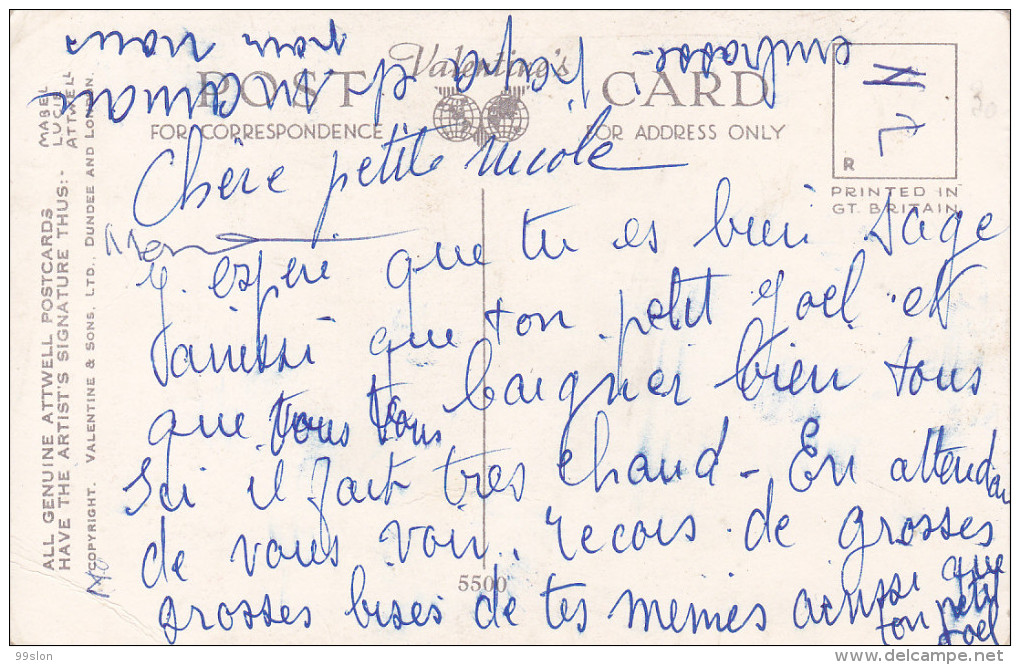 Valentine's
POST CARD
FOR CORRESPONDENCE
FOR ADDRESS ONLY
R
PRINTED IN
GT. BRITAIN
ALL GENUINE ATTWELL POSTCARDS
HAVE THE ARTIST'S SIGNATURE THUS:-
MABEL
LUCIE
ATTWELL
COPYRIGHT. VALENTINE & SONS, LTD., DUNDEE AND LONDON.
5500
Chère petite Nicole
J. espère que tu es bien sage
que ton petit Joel et
que vous vous baigner bien tous
Ici il fait très chaud - En attendan
de vous voir, recois de grosses
grosses bises de tes memes aussi que
ton petit
Joel
maman
et papa
pour nous
embrasse-
99slon
delcampe.net